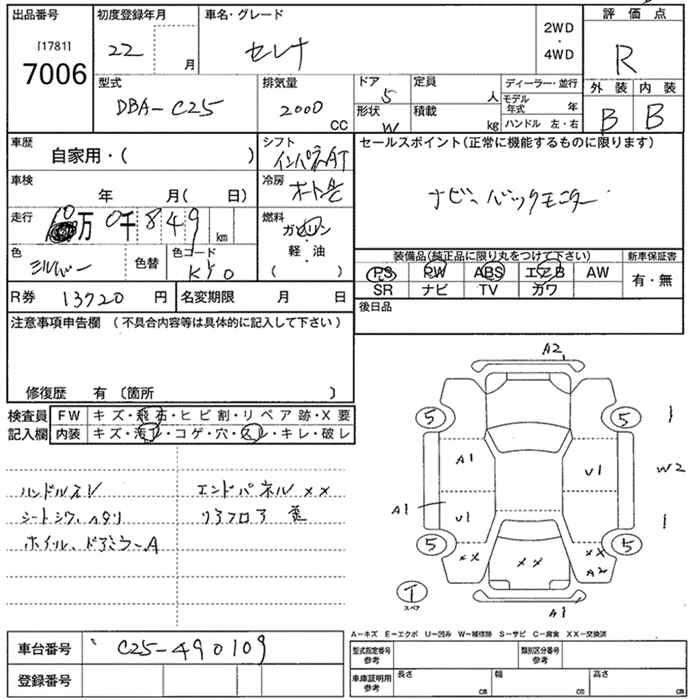 出品番号 初度登録年月 車名・グレード 2WD・4WD 評価点
[1781] 22 月 セレナ R
7006
型式 排気量 ドア 5 定員 人 ディーラー・並行 外装 内装
DBA-C25 2000 CC 形状 W 積載 kg モデル年式 年 B B
ハンドル 左・右
車歴 自家用・( ) シフト インパネAT セールスポイント(正常に機能するものに限ります)
車検 年 月( 日) 冷房 オート ナビ、バックモニター
走行 10万 0千 8 4 9 km 燃料 ガソリン・軽油 ( )
色 シルバー 色替 色コード KY0 装備品(純正品に限り丸をつけて下さい) 新車保証書
PS PW ABS エアB AW 有・無
SR ナビ TV カワ
R券 13720 円 名変期限 月 日 後日品
注意事項申告欄 (不具合内容等は具体的に記入して下さい)
修復歴 有 〔箇所 〕
検査員 FW キズ・飛石・ヒビ割・リペア跡・X要
記入欄 内装 キズ・汚れ・コゲ・穴・スレ・キレ・破レ
ハンドルスレ エンドパネル××
シートシワ、ヘタリ リヤフロア 歪
ホイル、ドアミラーA
A2
5 5 1
A1 U1 W2
A1 U1 1
5 ×× ×× ×× 5
A2
T スペア
A1
A-キズ E-エクボ U-凹み W-補修跡 S-サビ C-腐食 XX-交換済
車台番号 C25-490109 型式指定番号参考 類別区分番号参考
登録番号 車庫証明用参考 長さ cm 幅 cm 高さ cm